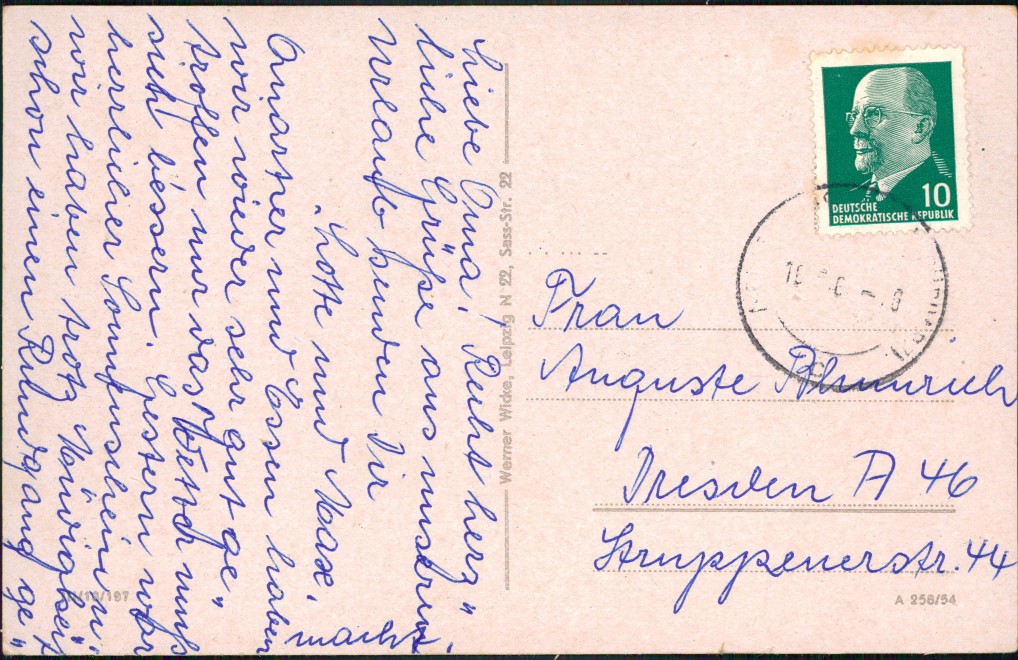 Liebe Oma! Recht herz„
liche Grüße aus unserem
Urlaub senden Dir
„Lotte und Max.
Quartier und Essen haben
wir wieder sehr gut ge„
troffen nur das Wetter muß
sich bessern. Gestern war
herrlicher Sonnenschein u.
wir haben trotz Müdigkeit
schon einen Rundgang ge„
macht.
Werner Wicke, Leipzig N 22, Sass-Str. 22
10
DEUTSCHE
DEMOKRATISCHE REPUBLIK
Frau
Auguste Blumrich
Dresden A 46
Struppenerstr. 44
A 256/54